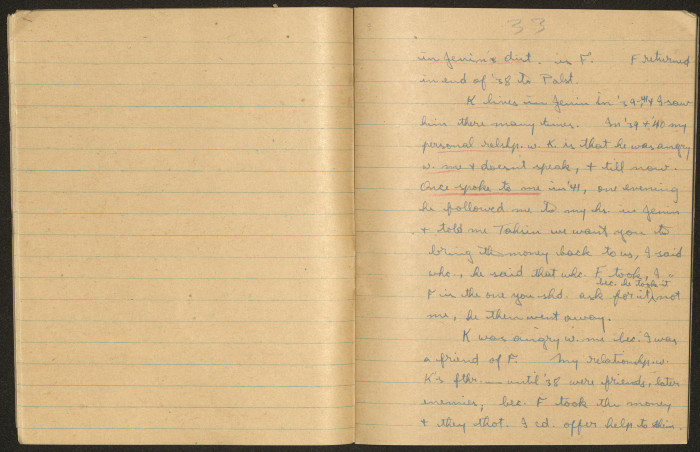 33
in Jenin & dist. is F. F returned
in end of '38 to Palst.
K lives in Jenin in '39-'41 & I saw
him there many times. In '39 & '40 my
personal relshp. w. K is that he was angry
w. me & doesn't speak, & till now.
Once spoke to me in '41, one evening
he followed me to my hs. in Jenin
& told me Tahsin we want you to
bring the money back to us, I said
whc., he said that whc. F took, I
bec. he took it
F is the one you shd. ask for it, not
me, he then went away.
K was angry w. me bec. I was
a friend of F. My relationshp. w.
K's fthr. — until '38 were friends, later
enemies, bec. F took the money
& they thot. I cd. offer help to him.